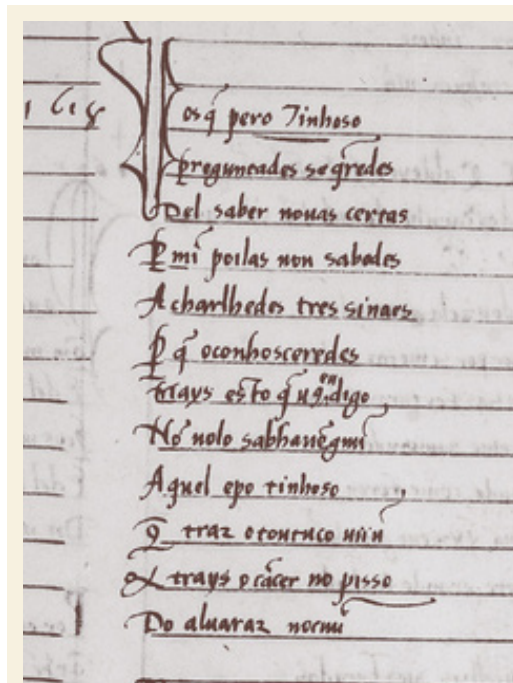 1618
Vos q̄ pero Tinhoso
preguntades se q̄redes
Del saber nouas certas
P̱ mī poilas non sabedes
Acharlhedes tres sinaes
P̱ q̄ oconhosceredes
trays esto q̄ uꝯ en digo
Nō uolo sabha
Aquel epo tinhoso
Q̄ traz o toutuço
trays o cācer no pisso
Do aluaraz